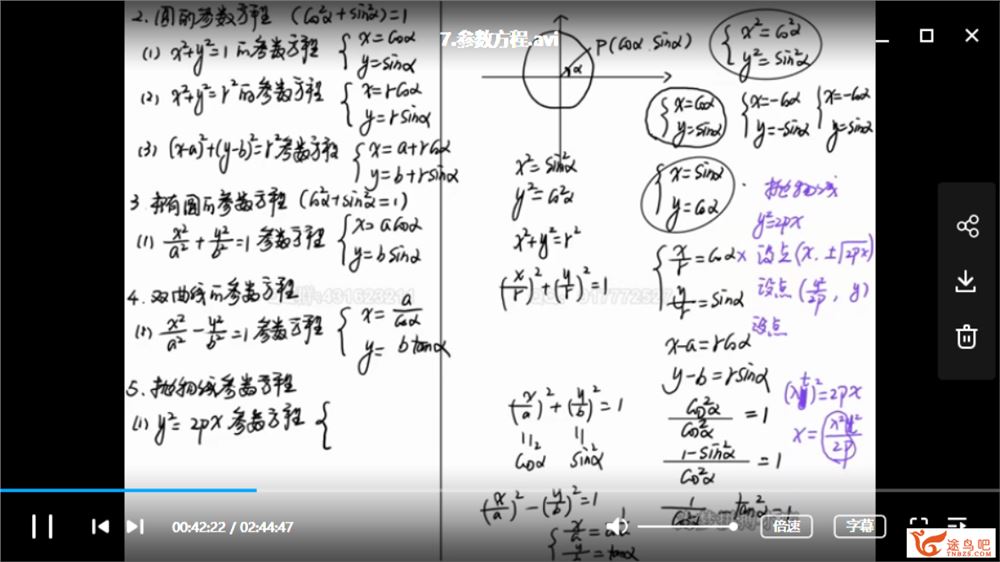 2. 圆的参数方程 (cos²α+sin²α)=1
(1) x²+y²=1的参数方程 { x=cosα
y=sinα
(2) x²+y²=r²的参数方程 { x=rcosα
y=rsinα
(3) (x-a)²+(y-b)²=r²参数方程 { x=a+rcosα
y=b+rsinα
3. 椭圆的参数方程 (cos²α+sin²α=1)
(1) x²/a²+y²/b²=1参数方程 { x=acosα
y=bsinα
4. 双曲线的参数方程
(1) x²/a²-y²/b²=1参数方程 { x=a/cosα
y=btanα
5. 抛物线参数方程
(1) y²=2px参数方程 {
7.参数方程.avi
P(cosα sinα)
α
{ x²=cos²α
y²=sin²α
{ x=cosα
y=sinα
{ x=-cosα
y=-sinα
{ x=-cosα
y=sinα
x²=sin²α
y²=cos²α
{ x=sinα
y=cosα
x²+y²=r²
(x/r)²+(y/r)²=1
{ x/r=cosα
y/r=sinα
x-a=rcosα
y-b=rsinα
(x/a)²+(y/b)²=1
cos²α sin²α
cos²α/cos²α=1
(1-sin²α)/cos²α=1
1/cos²α tan²α=1
(x/a)²-(y/b)²=1
y/b=tanα
抛物线
y²=2px
× 设点(x, ±√2px)
设点(y²/2p, y)
设点
)²=2px
x=
2p
00:42:22 / 02:44:47
倍速
字幕
途鸟吧
TNBZS.COM